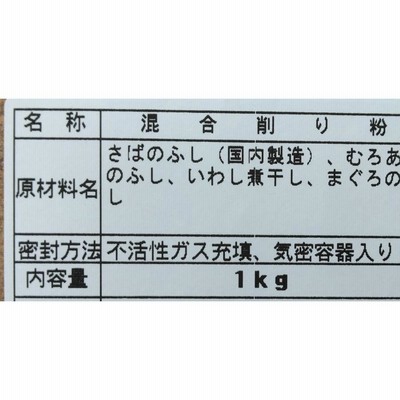 名称 混合削り粉
原材料名 さばのふし（国内製造）、むろあ
のふし、いわし煮干し、まぐろの
し
密封方法 不活性ガス充填、気密容器入り
内容量 1kg